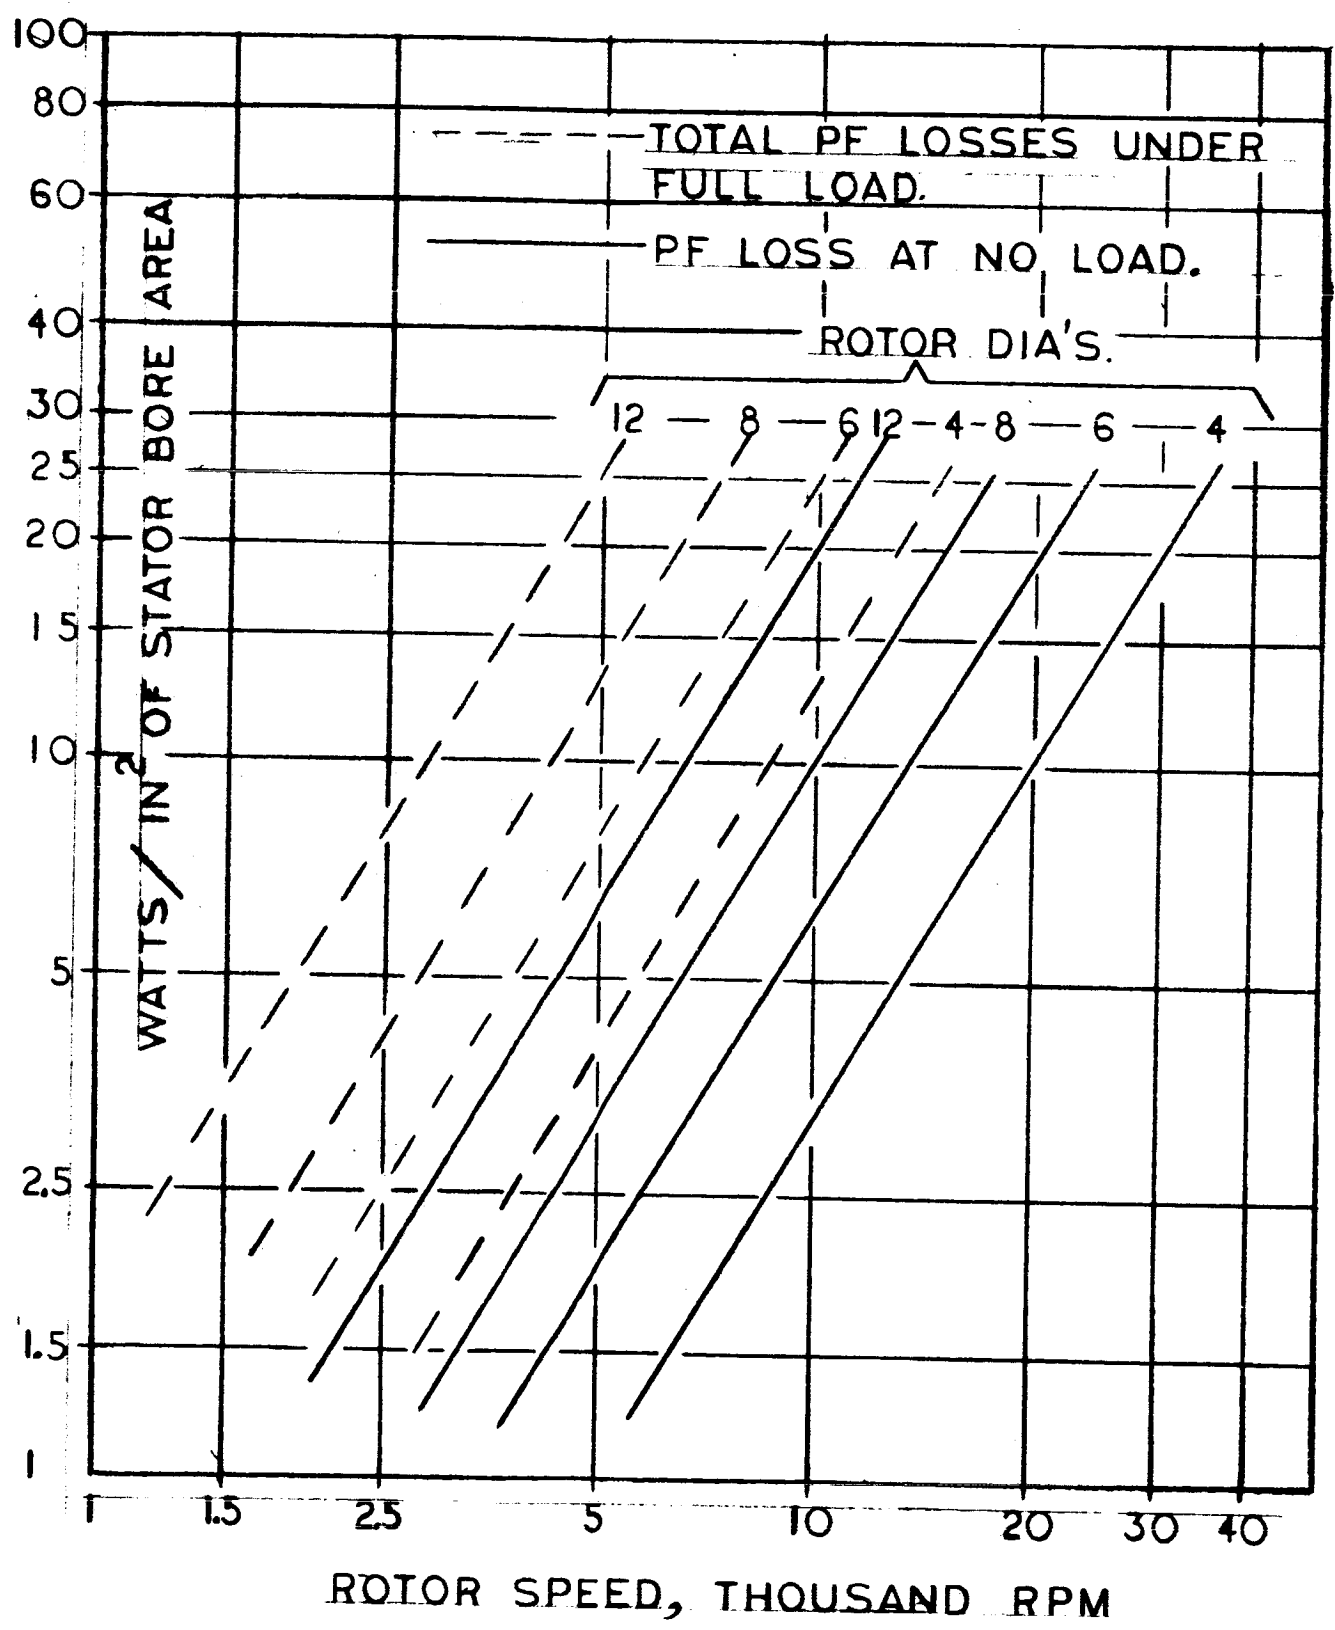 100
80
60
40
30
25
20
15
10
5
2.5
1.5
1
WATTS/IN² OF STATOR BORE AREA
TOTAL PF LOSSES UNDER
FULL LOAD.
PF LOSS AT NO LOAD.
ROTOR DIA'S.
12 8 6 12 4 8 6 4
1 1.5 2.5 5 10 20 30 40
ROTOR SPEED, THOUSAND RPM